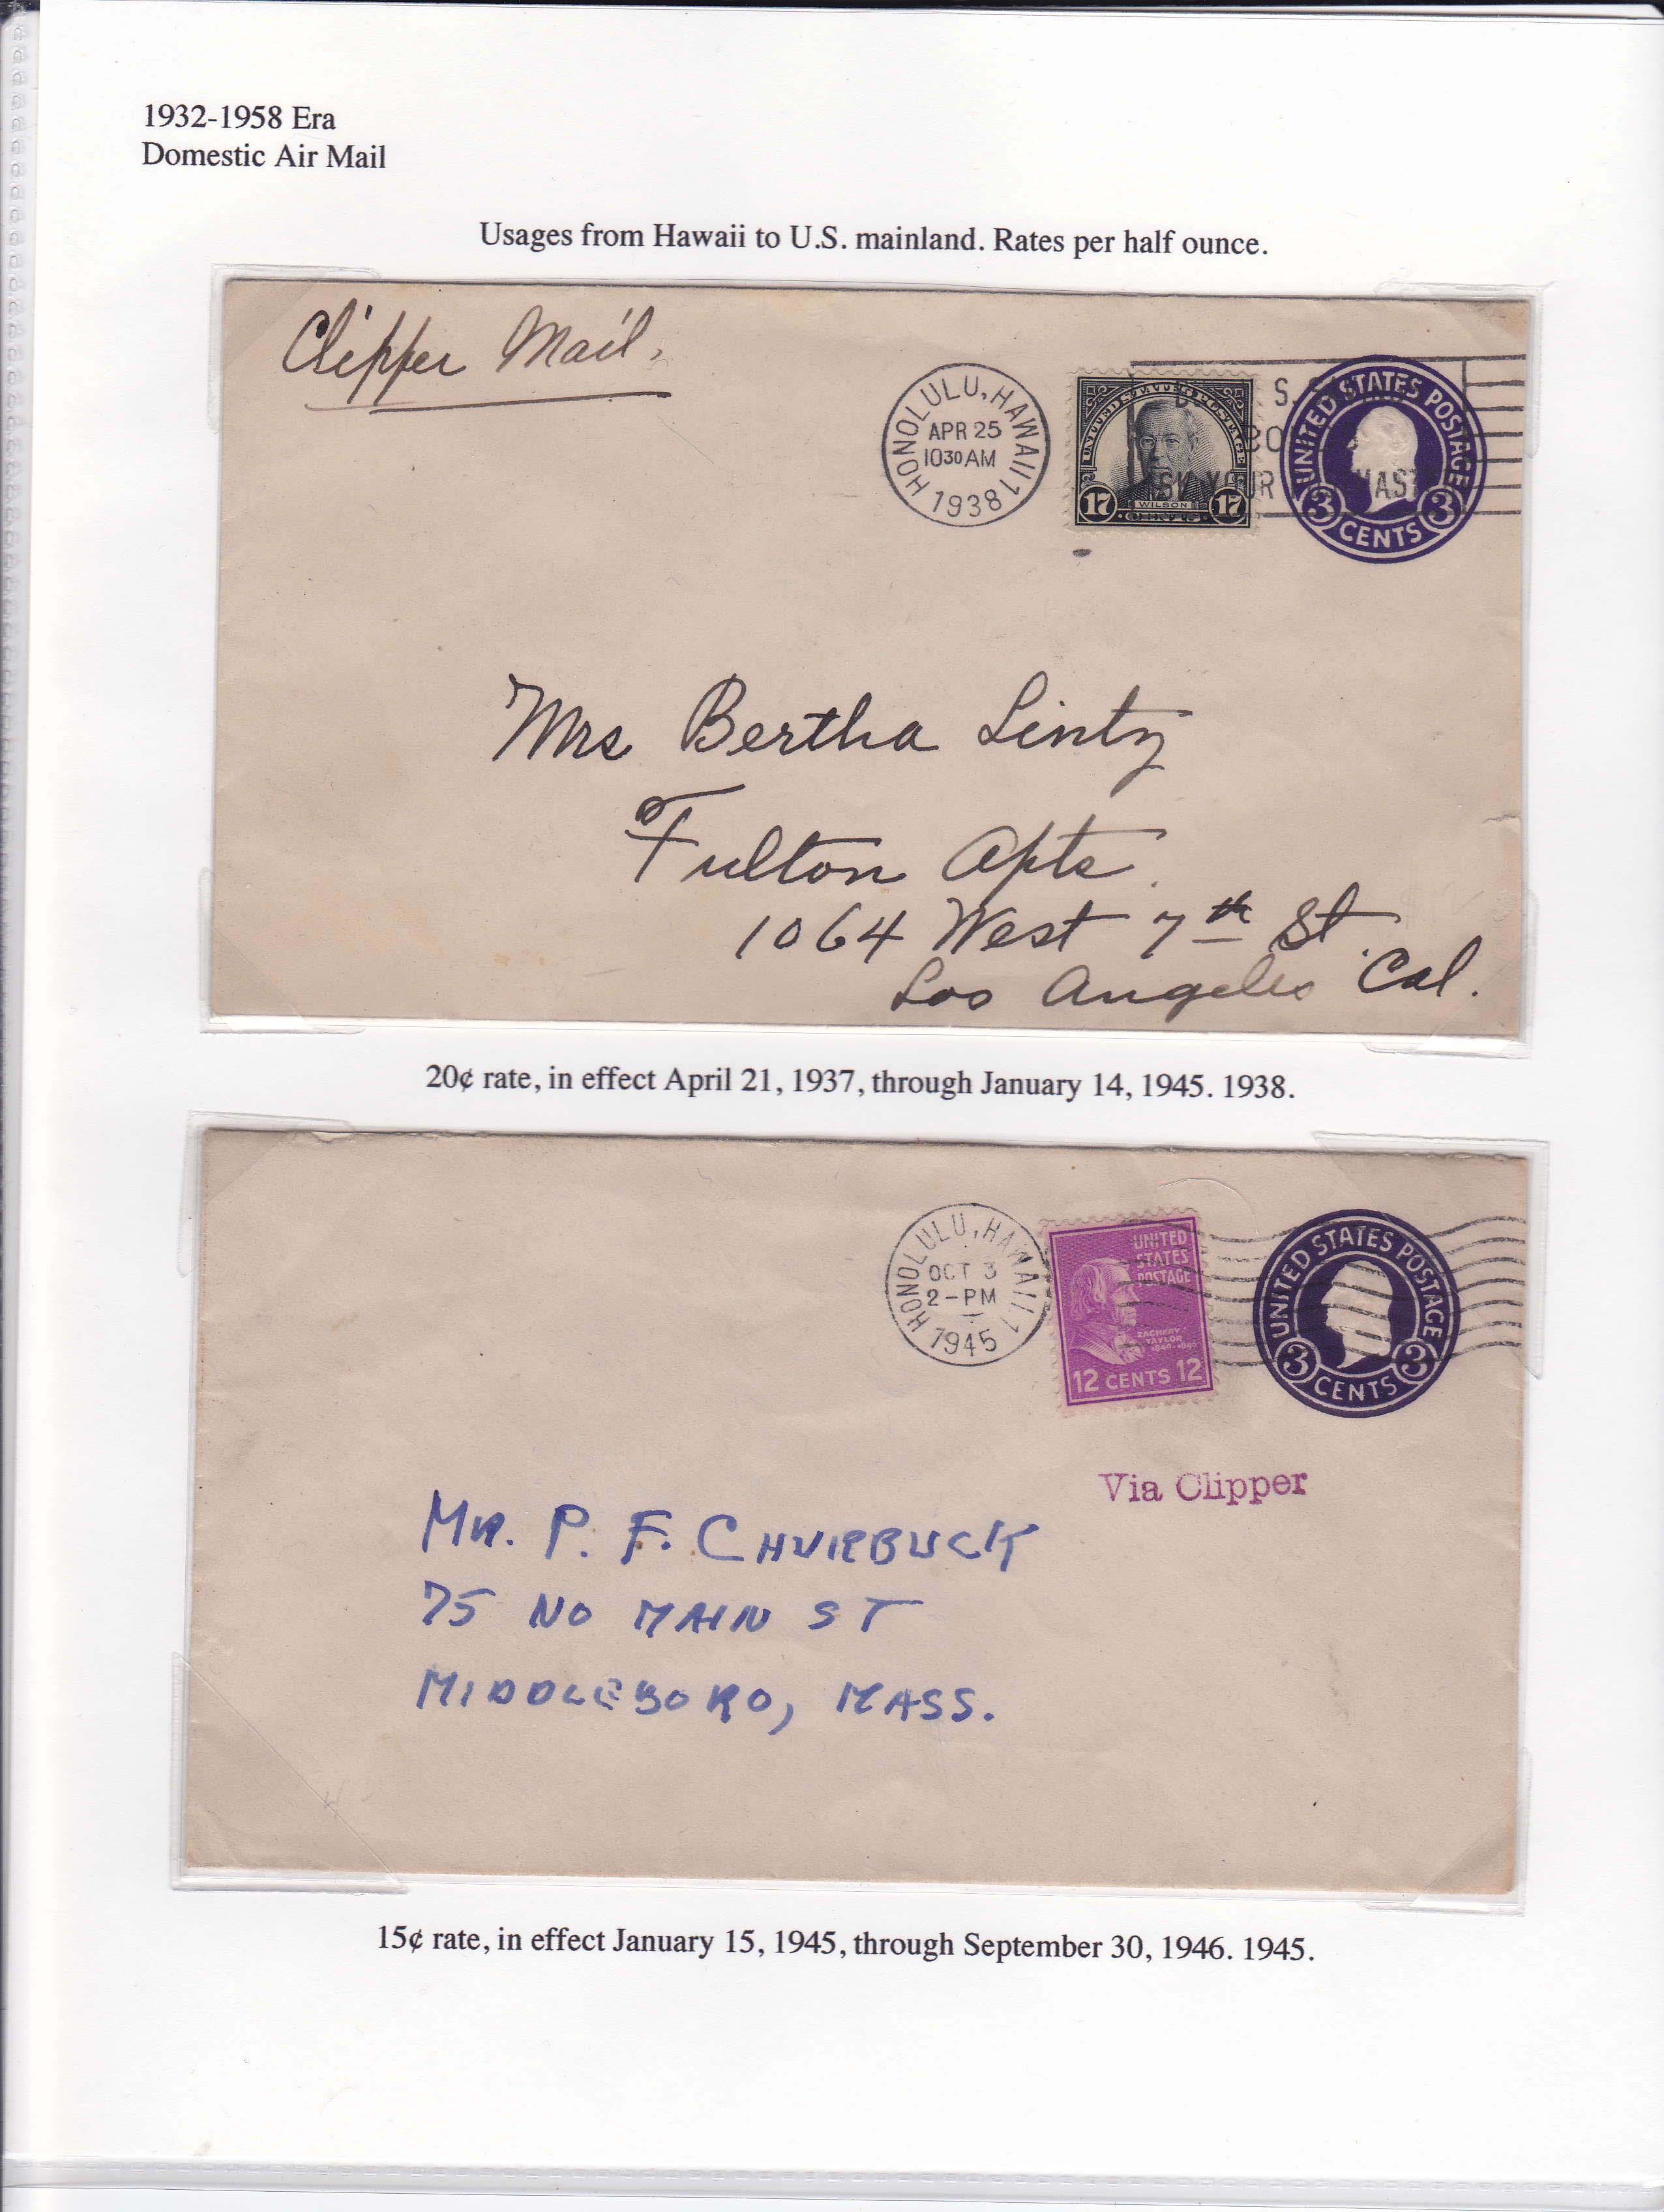 1932-1958 Era
Domestic Air Mail
Usages from Hawaii to U.S. mainland. Rates per half ounce.
Clipper Mail,
HONOLULU, HAWAII 1
APR 25
1030 AM
1938
S.
YOUR
17 WILSON 17
UNITED STATES POSTAGE
3 CENTS 3
Mrs Bertha Lintz
Fulton Apts.
1064 West 7th St.
Los Angeles Cal.
20¢ rate, in effect April 21, 1937, through January 14, 1945. 1938.
HONOLULU, HAWAII 1
OCT 3
2-PM
1945
UNITED
STATES
POSTAGE
ZACHARY
TAYLOR
12 CENTS 12
UNITED STATES POSTAGE
3 CENTS 3
Via Clipper
MR. P. F. CHURBUCK
75 NO MAIN ST
MIDDLEBORO, MASS.
15¢ rate, in effect January 15, 1945, through September 30, 1946. 1945.